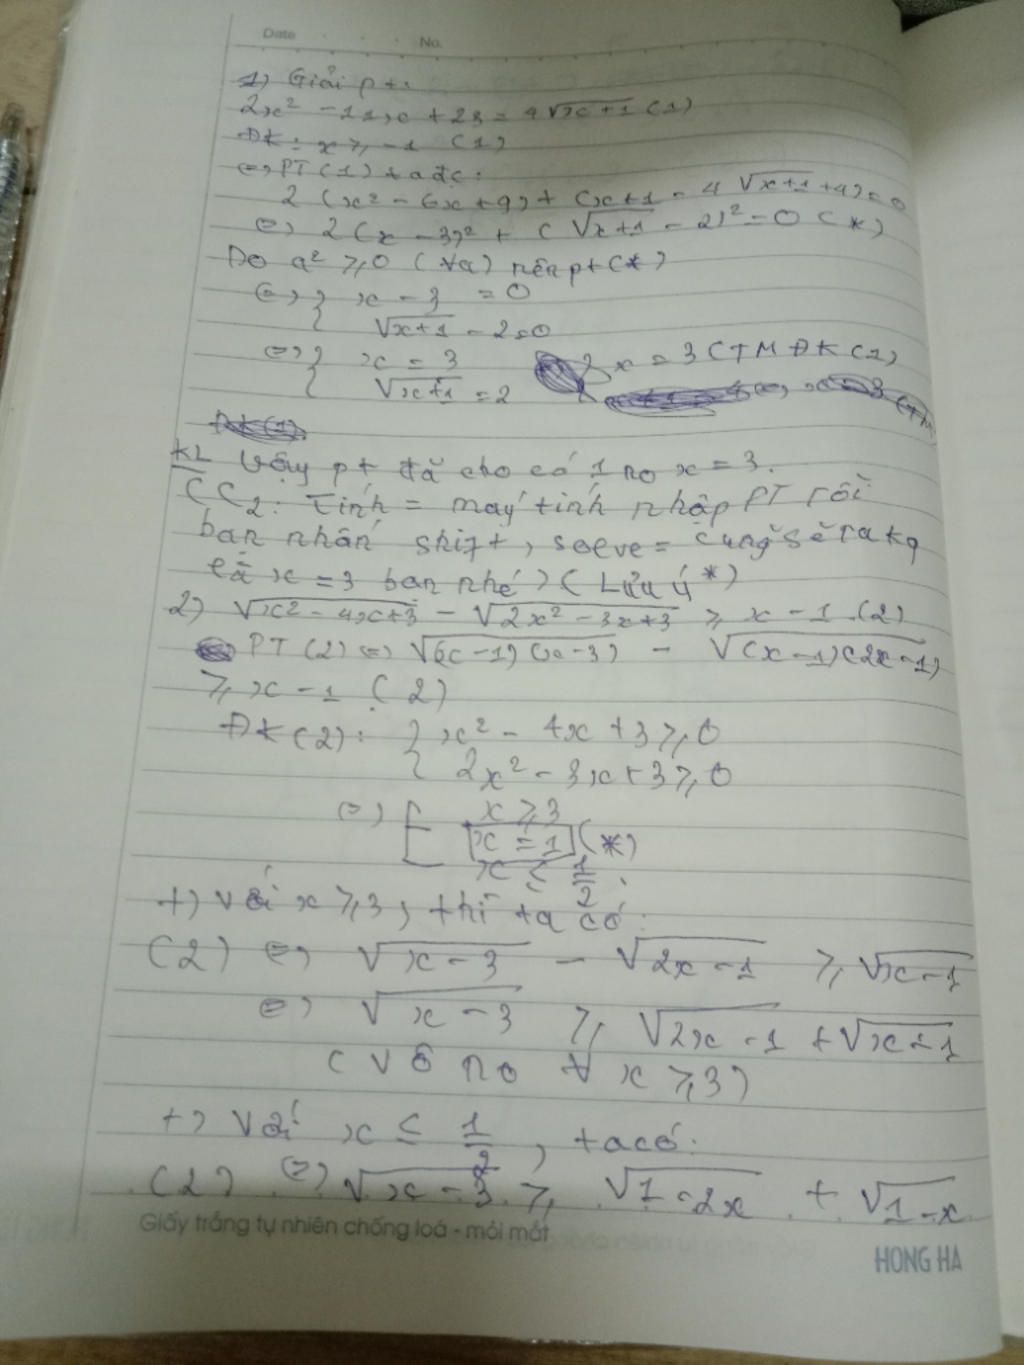 Date No.
1) Giải pt:
2x² - 11x + 23 = 4√x+1 (1)
ĐK: x ≥ -1 (1)
<=> PT (1) ta đc:
2 (x² - 6x + 9) + (x+1 - 4√x+1 + 4) = 0
<=> 2(x - 3)² + (√x+1 - 2)² = 0 (*)
Do a² ≥ 0 (∀a) nên pt (*)
<=> { x - 3 = 0
√x+1 - 2 = 0
<=> { x = 3
√x+1 = 2
x = 3 (TM ĐK (1)
KL Vậy pt đã cho có 1 no x = 3.
CC2: Tính = máy tính nhập PT rồi
bạn nhấn shift, solve = cũng sẽ ra kq
là x = 3 bạn nhé) (Lưu ý *)
2) √x² - 4x + 3 - √2x² - 3x + 3 ≥ x - 1 (2)
PT (2) <=> √(x-1)(x-3) - √(x-1)(2x-1)
≥ x - 1 (2)
ĐK (2): { x² - 4x + 3 ≥ 0
2x² - 3x + 3 ≥ 0
<=> [ x ≥ 3
x = 1 (*)
x ≤ 1/2.
+) Với x ≥ 3, thì ta có:
(2) <=> √x - 3 - √2x - 1 ≥ √x - 1
<=> √x - 3 ≥ √2x - 1 + √x - 1
(Vô no ∀ x ≥ 3)
+) Với x ≤ 1/2, ta có:
(2) <=> √x - 3 ≥ √1 - 2x + √1 - x
Giấy trắng tự nhiên chống loá - mỏi mắt
HONG HA